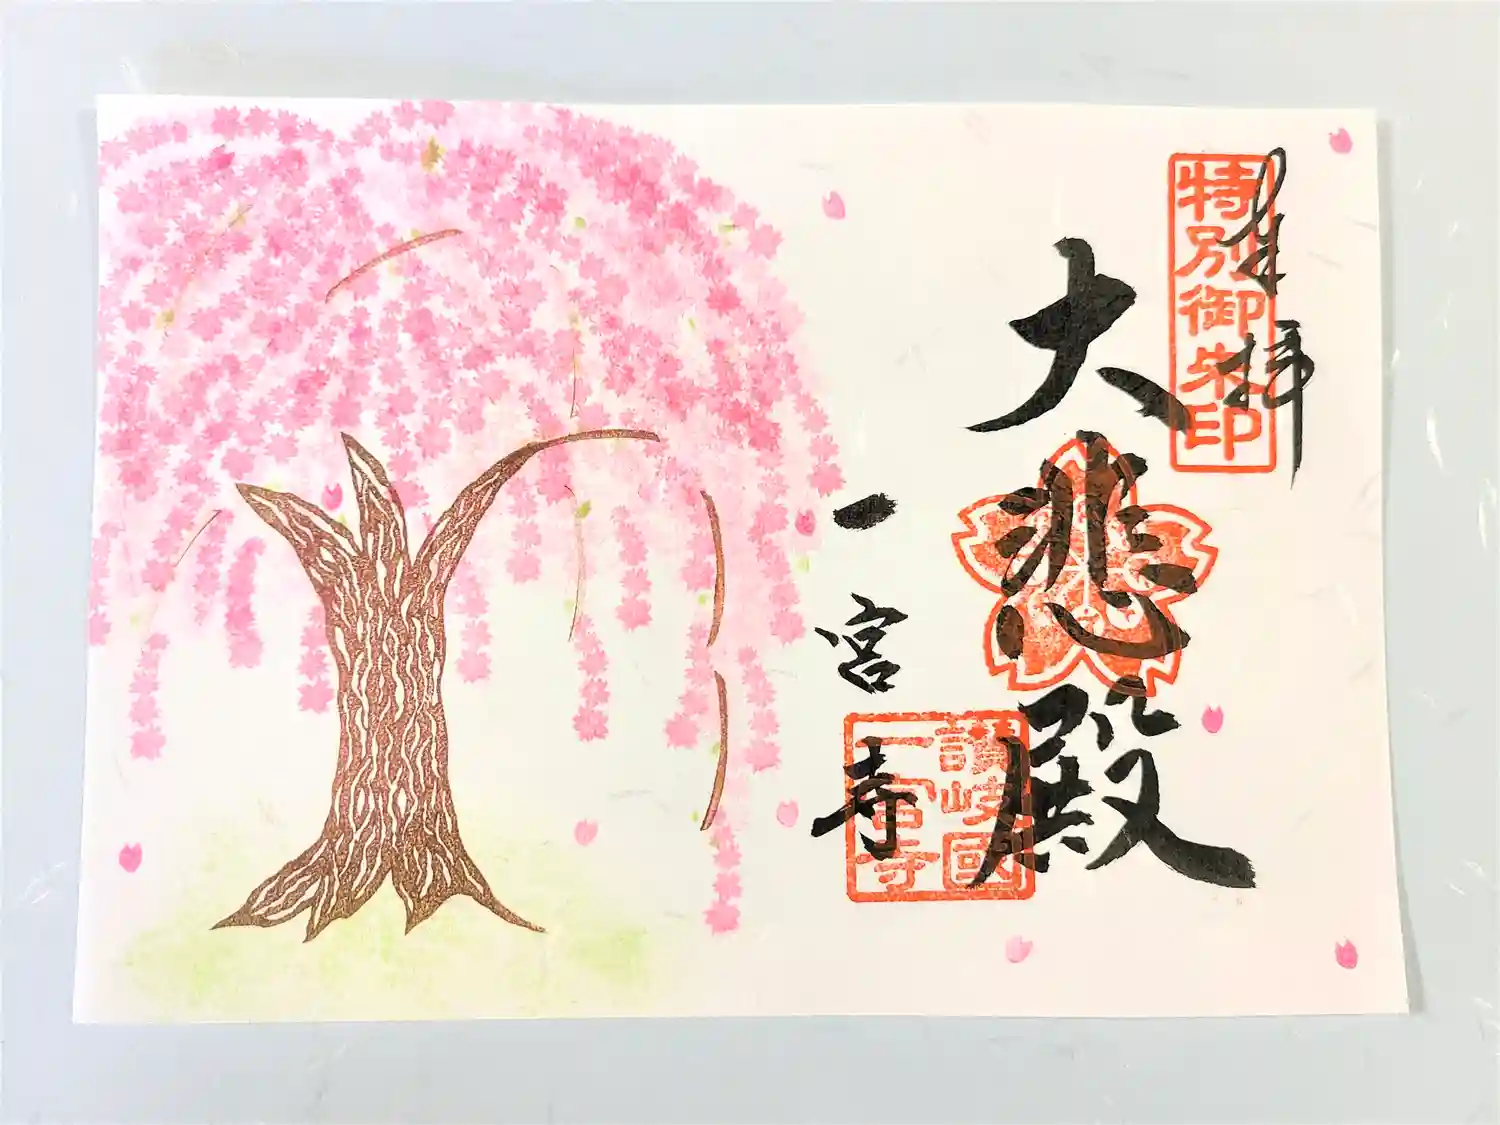 奉拝
特別御朱印
大悲殿
讃岐國
一宮寺
一宮寺